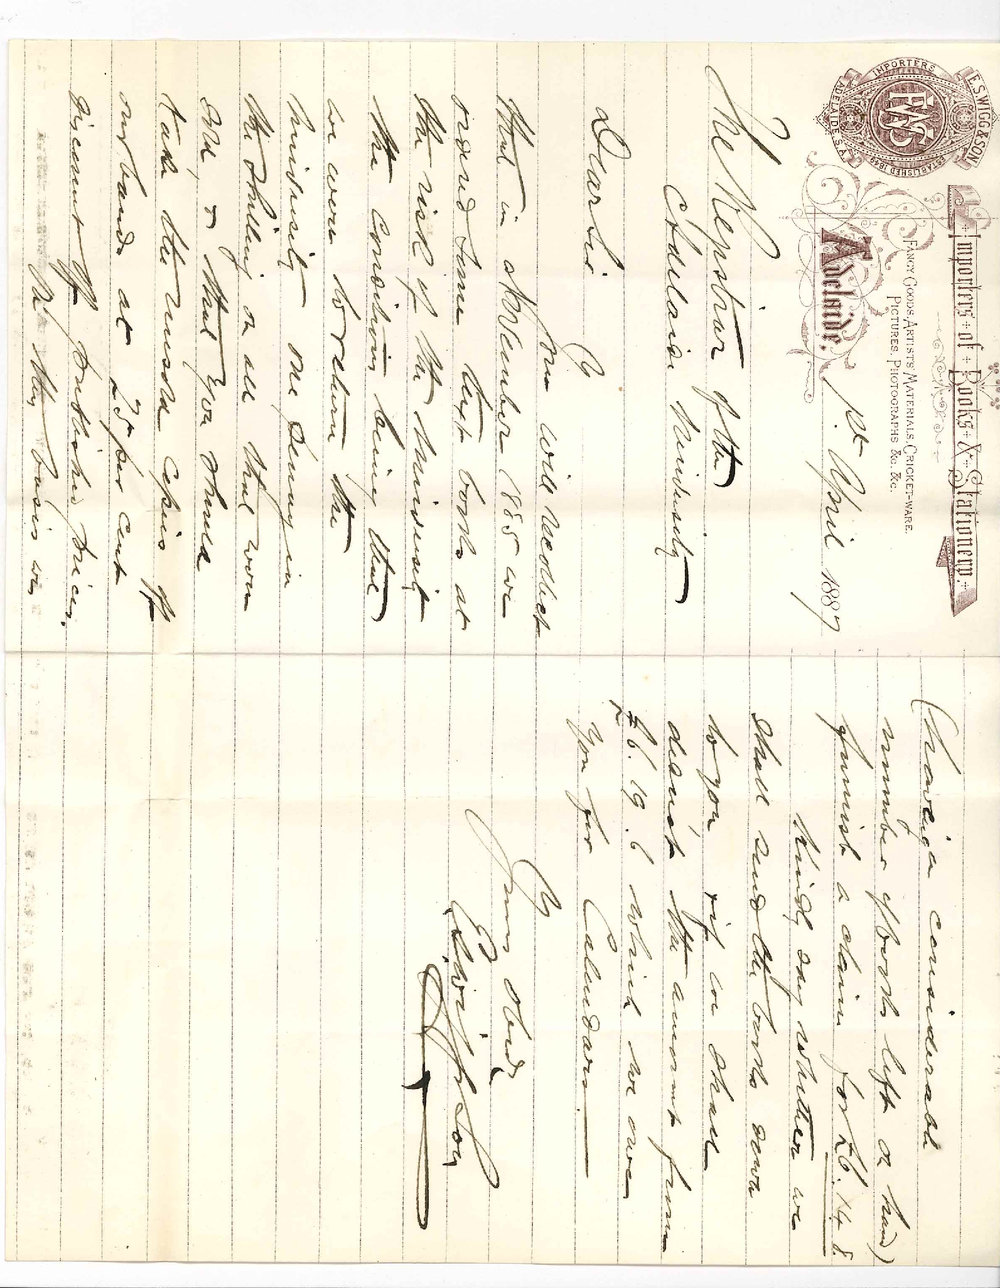 E.S. WIGG & SON
IMPORTERS
EWS
ESTABLISHED 1849
ADELAIDE S.A.
Importers of Books & Stationery
FANCY GOODS, ARTISTS MATERIALS, CRICKET-WARE,
PICTURES, PHOTOGRAPHS &c. &c.
Adelaide, 1st April 1887
The Registrar of the
Adelaide University
Dear Sir
You will recollect
that in November 1885 we
ordered some text books at
the risk of the University
the condition being that
we were to return the
University one penny in
the shilling on all that were
sold & that you should
take the unsold copies off
our hands at 25 per cent
discount off published prices.
On this basis we
(having a considerable
number of books left on hand)
furnish a claim for £6.14.8.
Kindly say whether we
shall send the books down
to you & if we shall
deduct the amount from
£6.19.6 which we owe
you for Calendars
Yours obedly
E.S. Wigg & Son